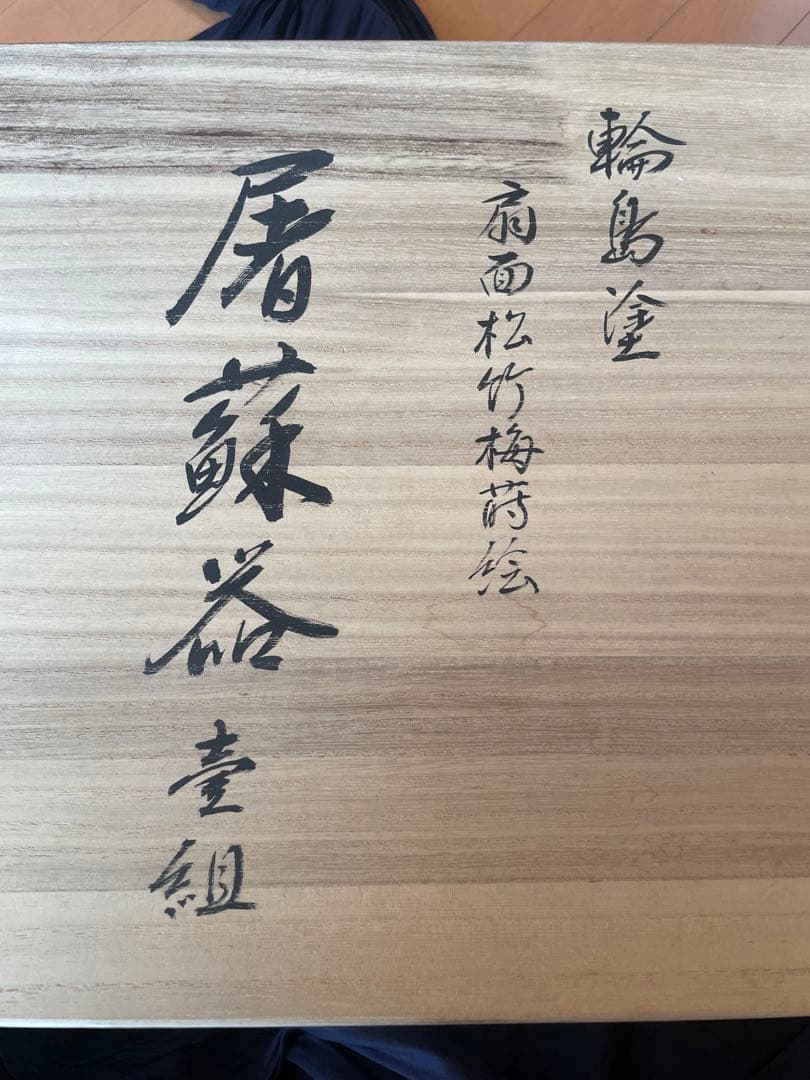 輪島塗
扇面松竹梅蒔絵
屠蘇器 壹組